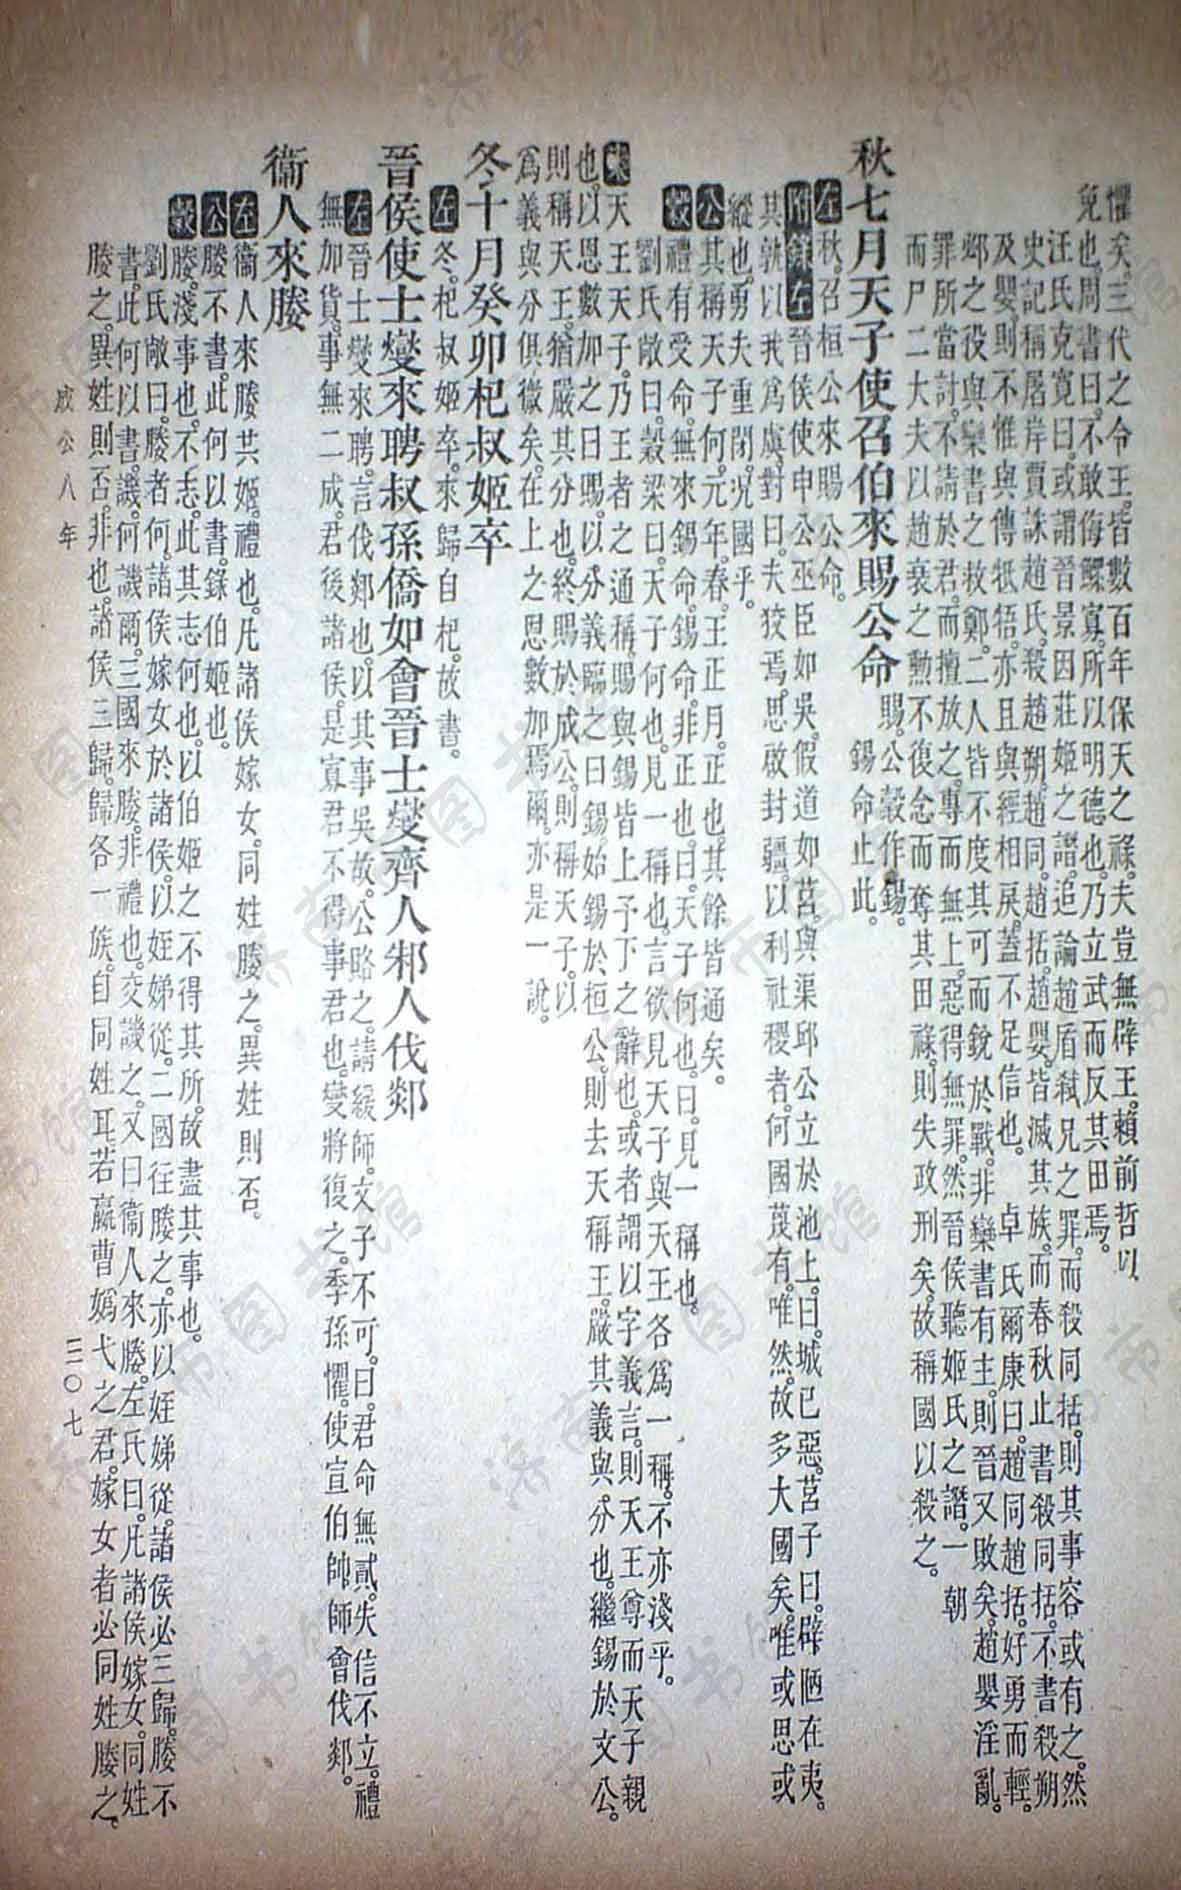 懼矣。三代之令王。皆數百年保天之祿。夫豈無辟王。賴前哲以
免也。周書曰。不敢侮鰥寡。所以明德也。乃立武而反其田焉。
汪氏克寬曰。或謂晉景因莊姬之譖。追論趙盾弒兄之罪。而殺同括。則其事容或有之。然
史記稱屠岸賈誅趙氏。殺趙朔。趙同。趙括。趙嬰。皆滅其族。而春秋止書殺同括。不書殺朔
及嬰。則不惟與傳牴牾。亦且與經相戾。蓋不足信也。 卓氏爾康曰。趙同趙括。好勇而輕。
邲之役。與欒書之救鄭。二人皆不度其可而銳於戰。非欒書有主。則晉又敗矣。趙嬰淫亂。
罪所當討。不請於君。而擅放之。專而無上。惡得無罪。然晉侯聽姬氏之譖。一朝
而尸二大夫。以趙衰之勳。不復念而奪其田祿。則失政刑矣。故稱國以殺之。
秋七月天子使召伯來賜公命 賜。公穀作錫。
錫命止此。
左 秋。召桓公來賜公命。
附錄左 晉侯使申公巫臣如吳。假道如莒。與渠邱公立於池上。曰。城已惡。莒子曰。辟陋在夷。
其孰以我爲虞。對曰。夫狡焉。思啟封疆。以利社稷者。何國蔑有。唯然。故多大國矣。唯或思或
縱也。勇夫重閉。況國乎。
公 其稱天子何。元年。春。王正月。正也。其餘皆通矣。
穀 禮有受命。無來錫命。錫命。非正也。曰。天子何也。曰。見一稱也。
劉氏敞曰。穀梁曰。天子何也。見一稱也。言欲見天子與天王各爲一稱。不亦淺乎。
案 天王天子。乃王者之通稱。賜與錫。皆上予下之辭也。或者謂以字義言。則天王尊而天子親
也。以恩數加之曰賜。以分義臨之曰錫。始錫於桓公。則去天稱王。嚴其義與。分也。繼錫於文公。
則稱天王。猶嚴其分也。終賜於成公。則稱天子。以
爲義與分俱微矣。在上之恩數加焉爾。亦是一說。
冬十月癸卯杞叔姬卒
左 冬。杞叔姬卒。來歸自杞。故書。
晉侯使士燮來聘叔孫僑如會晉士燮齊人邾人伐郯
左 晉士燮來聘。言伐郯也。以其事吳故。公賂之。請緩師。文子不可。曰。君命無貳。失信不立。禮
無加貨。事無二成。君後諸侯。是寡君不得事君也。燮將復之。季孫懼。使宣伯帥師會伐郯。
衞人來媵
左 衞人來媵共姬。禮也。凡諸侯嫁女。同姓媵之。異姓則否。
公 媵不書。此何以書。錄伯姬也。
穀 媵。淺事也。不志。此其志何也。以伯姬之不得其所。故盡其事也。
劉氏敞曰。媵者何。諸侯嫁女於諸侯。以姪娣從。二國往媵之。亦以姪娣從。諸侯必三歸。媵不
書。此何以書。譏。何譏爾。三國來媵。非禮也。交譏之。又曰。衞人來媵。左氏曰。凡諸侯嫁女。同姓
媵之。異姓則否。非也。諸侯三歸。歸各一族。自同姓耳。若嬴曹嬀弋之君。嫁女者必同姓媵之。
成公八年
三〇七